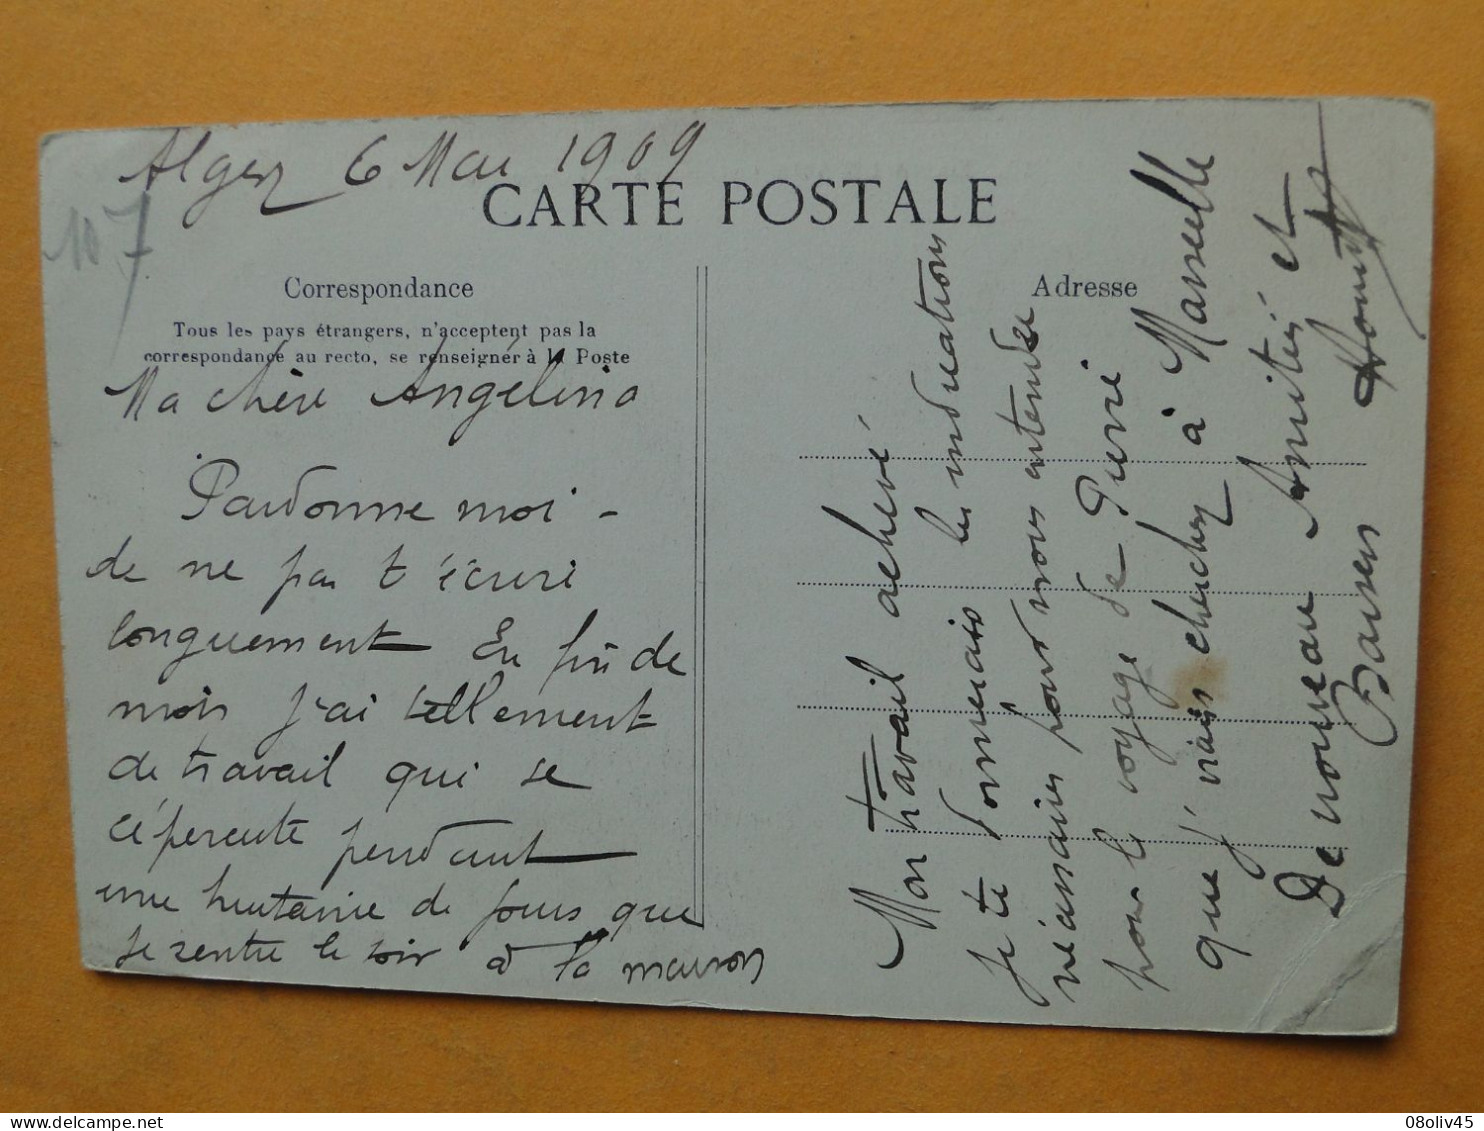 Alger 6 Mai 1909
107
CARTE POSTALE
Correspondance
Tous les pays étrangers, n'acceptent pas la
correspondance au recto, se renseigner à la Poste
Ma chère Angelina
Pardonne moi -
de ne pas t'écrire
longuement En fin de
mois j'ai tellement
de travail qui se
répercute pendant
une huitaine de jours que
je rentre le soir à la maison
Adresse
Mon travail achevé
Je te donnerais les indications
nécessaires pour nous entendre
pour le voyage de Pierre
que j'irais chercher à Marseille
De nouveau Amitiés et
Baisers
08oliv45